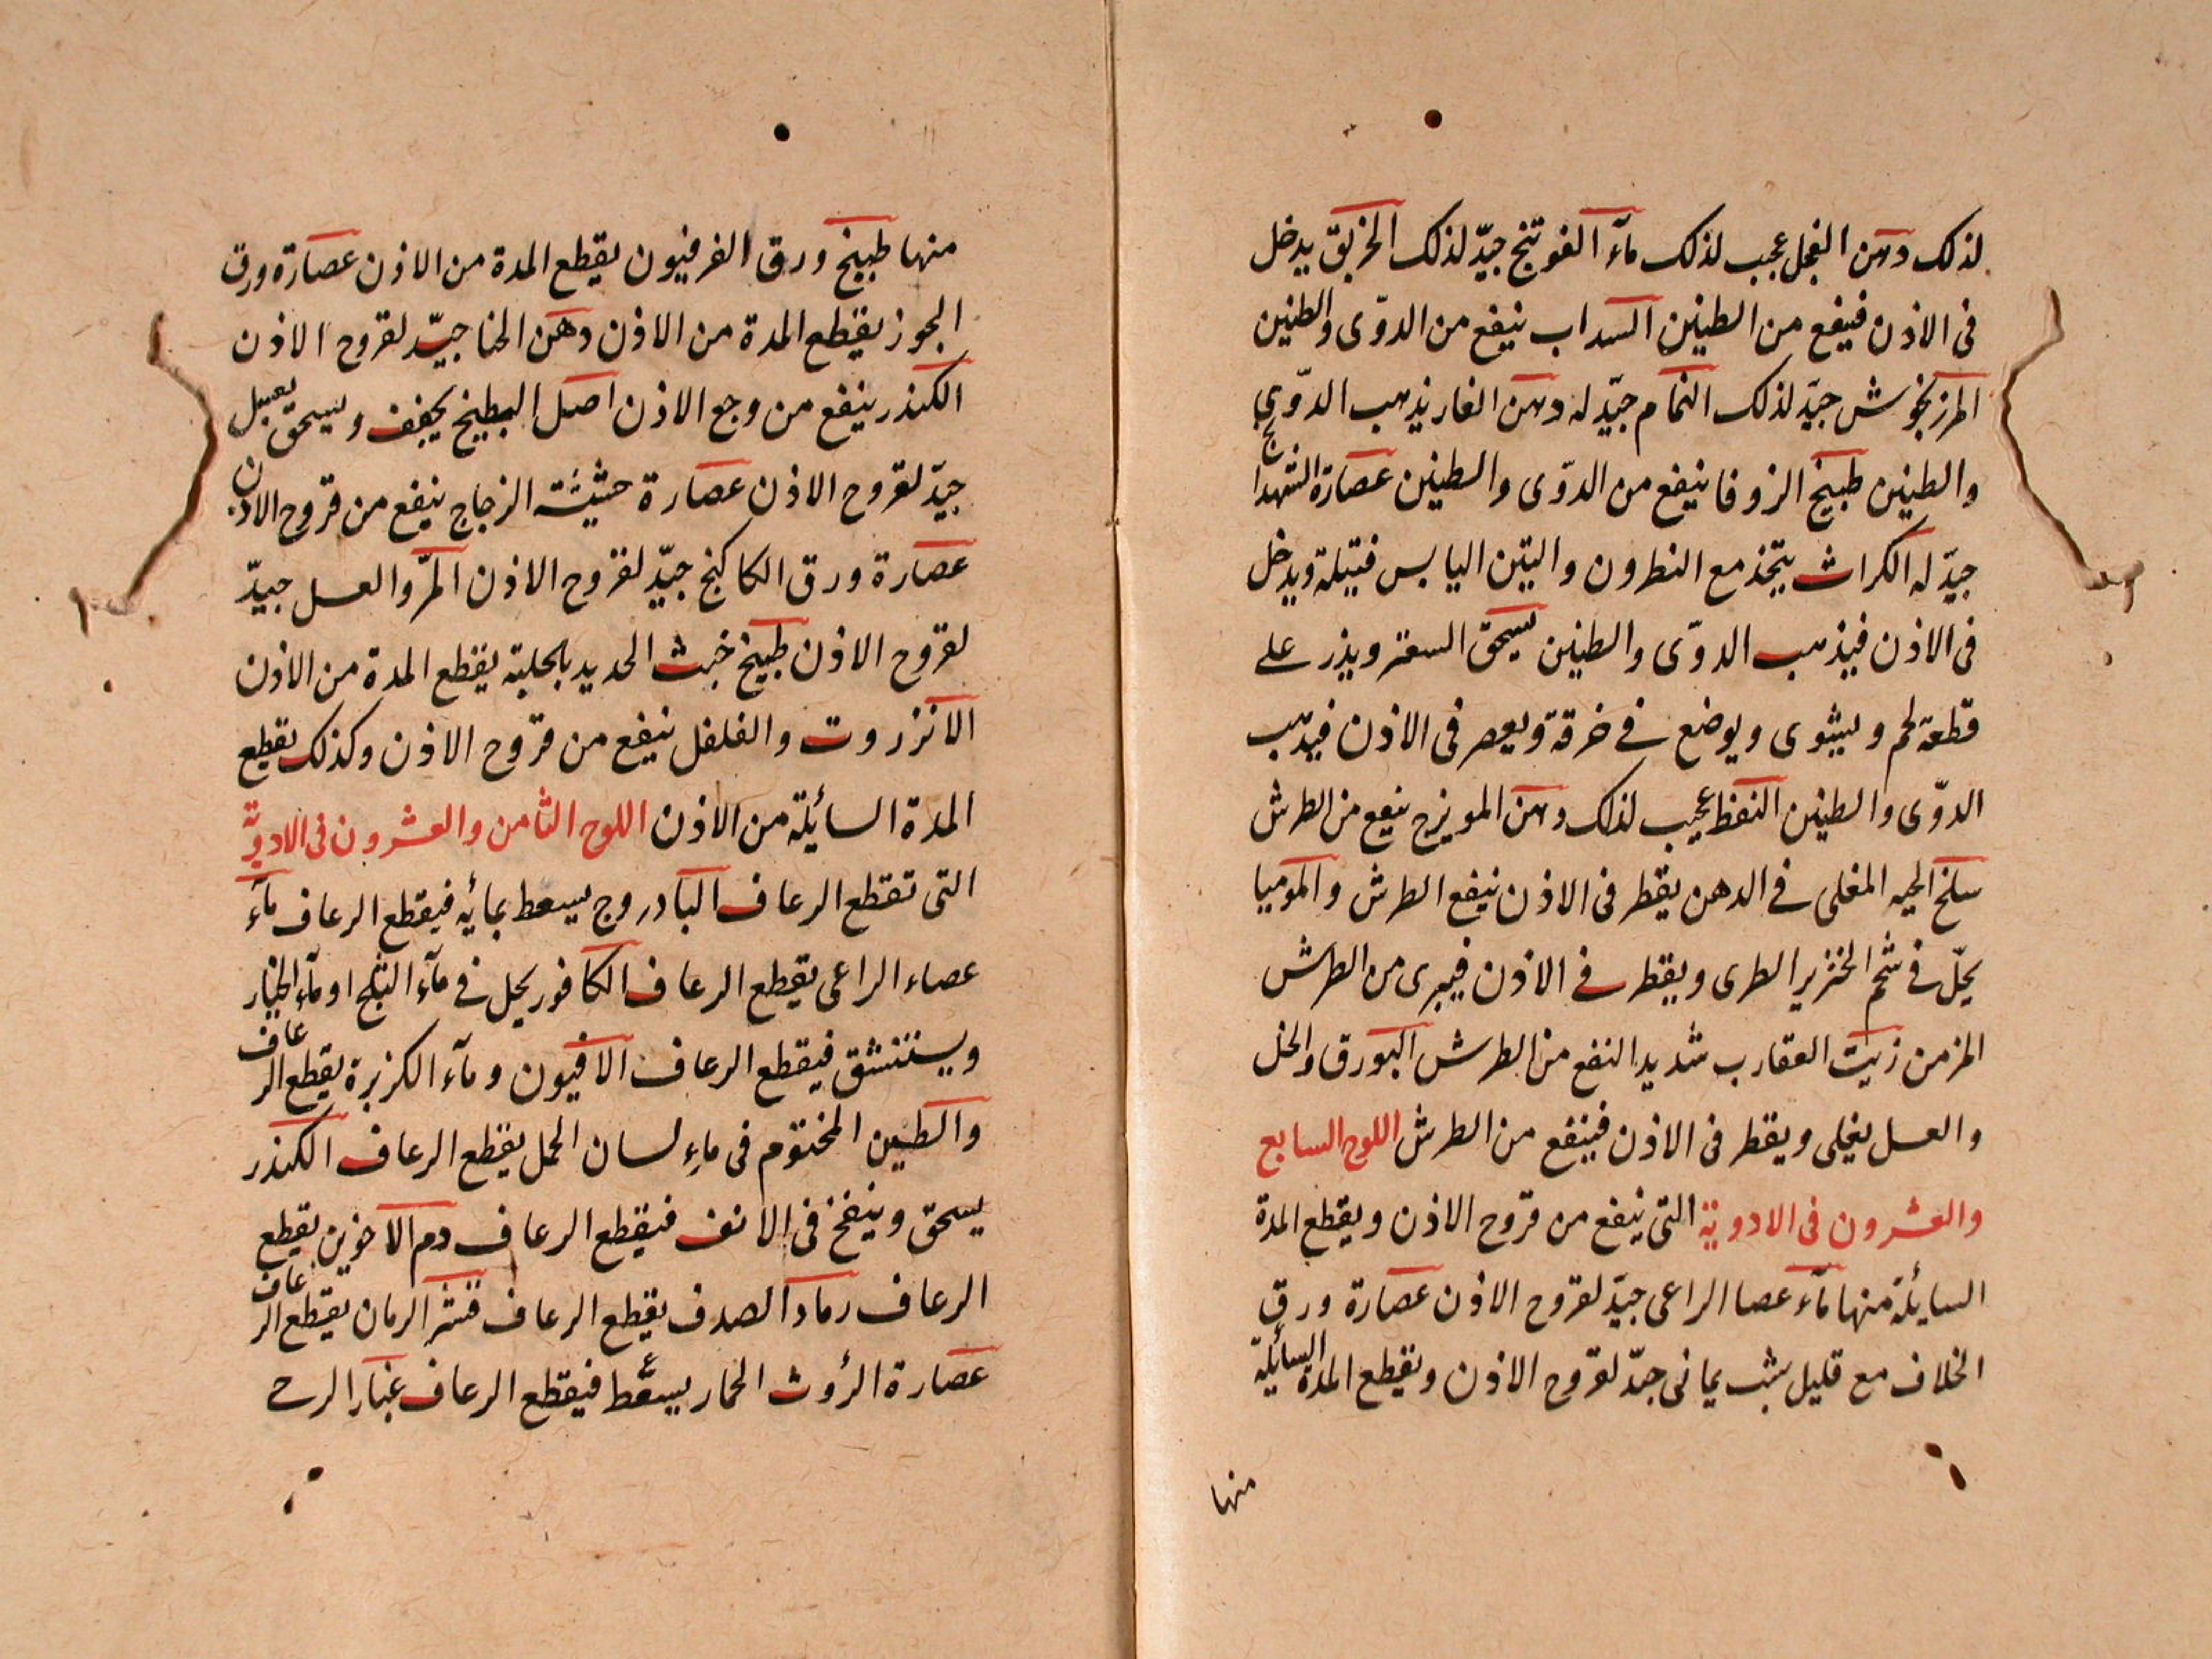 لذلك دهن الفجل عجب لذلك مآء الفوتنج جيّد لذلك الخربق يدخل
فى الاذن فينفع من الطينين السداب ينفع من الدوّى والطنين
المرزنجوش جيّد لذلك النمام جيّد له دهن الغار يذهب الدوّى
والطينين طبيخ الزوفا ينفع من الدوّى والطينين عصارة الشهدانج
جيّد له الكراث يتخذ مع النطرون والتين اليابس فتيلة ويدخل
فى الاذن فيذهب الدوّى والطنين يسحق السعتر ويذر على
قطعة لحم ويشوى ويوضع فى خرقة ويعصر فى الاذن فيذهب
الدوّى والطينين النفط عجيب لذلك دهن المويزج ينفع من الطرش
سلخ الحيه المغلى فى الدهن يقطر فى الاذن ينفع الطرش والموميا
يحلّ فى شحم الخنزير الطرى ويقطر فى الاذن فيبرى من الطرش
المزمن زيت العقارب شديد النفع من الطرش البورق والخل
والعسل يغلى ويقطر فى الاذن فينفع من الطرش اللوح السابع
والعشرون فى الادوية التى ينفع من قروح الاذن ويقطع المدة
السايلة منها مآء عصا الراعى جيّد لقروح الاذن عصارة ورق
الخلاف مع قليل شب يمانى جيّد لقروح الاذن ويقطع المدة السائلة
منها
منها طبيخ ورق الفرفيون يقطع المدة من الاذن عصارة ورق
الجوز يقطع المدة من الاذن دهن الحنا جيّد لقروح الاذن
الكندر ينفع من وجع الاذن اصل البطيخ يجفف ويسحق بعسل
جيّد لقروح الاذن عصارة حشيشة الزجاج ينفع من قروح الاذن
عصارة ورق الكاكنج جيّد لقروح الاذن المرّ والعسل جيدّ
لقروح الاذن طبيخ خبث الحديد بالحلبة يقطع المدة من الاذن
الانزروت والفلفل ينفع من قروح الاذن وكذلك يقطع
المدة السائلة من الاذن اللوح الثامن والعشرون فى الادوية
التى تقطع الرعاف البادروج يسعط بمائه فيقطع الرعاف مآء
عصاء الراعى يقطع الرعاف الكافور يحل فى مآء الثلج او مآء الخيار
ويستنشق فيقطع الرعاف الافيون ومآء الكزبرة يقطع الرعاف
والطين المختوم فى ماء لسان الحمل يقطع الرعاف الكندر
يسحق وينفخ فى الانف فيقطع الرعاف دم الاخوين يقطع
الرعاف رماد الصدف يقطع الرعاف قشر الرمان يقطع الرعاف
عصارة الرؤث الحمار يسعط فيقطع الرعاف غبار الرحى